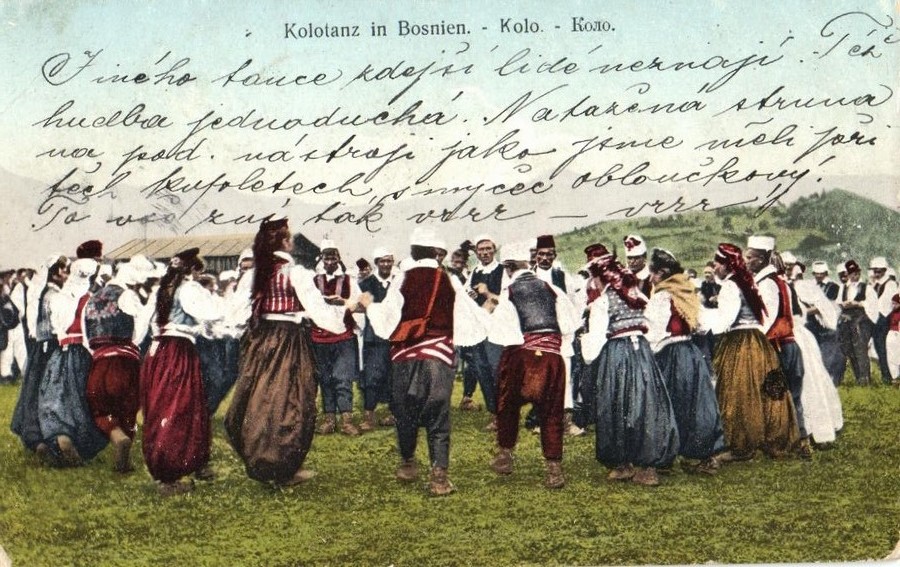 Kolotanz in Bosnien. - Kolo. - Коло.
Jiného tance zdejší lidé neznají. Též
hudba jednoduchá. Natažená struna
na pod. nástroji jako jsme měli při
těch kupletech, smyčec obloučkový.
To vrr — vrrr